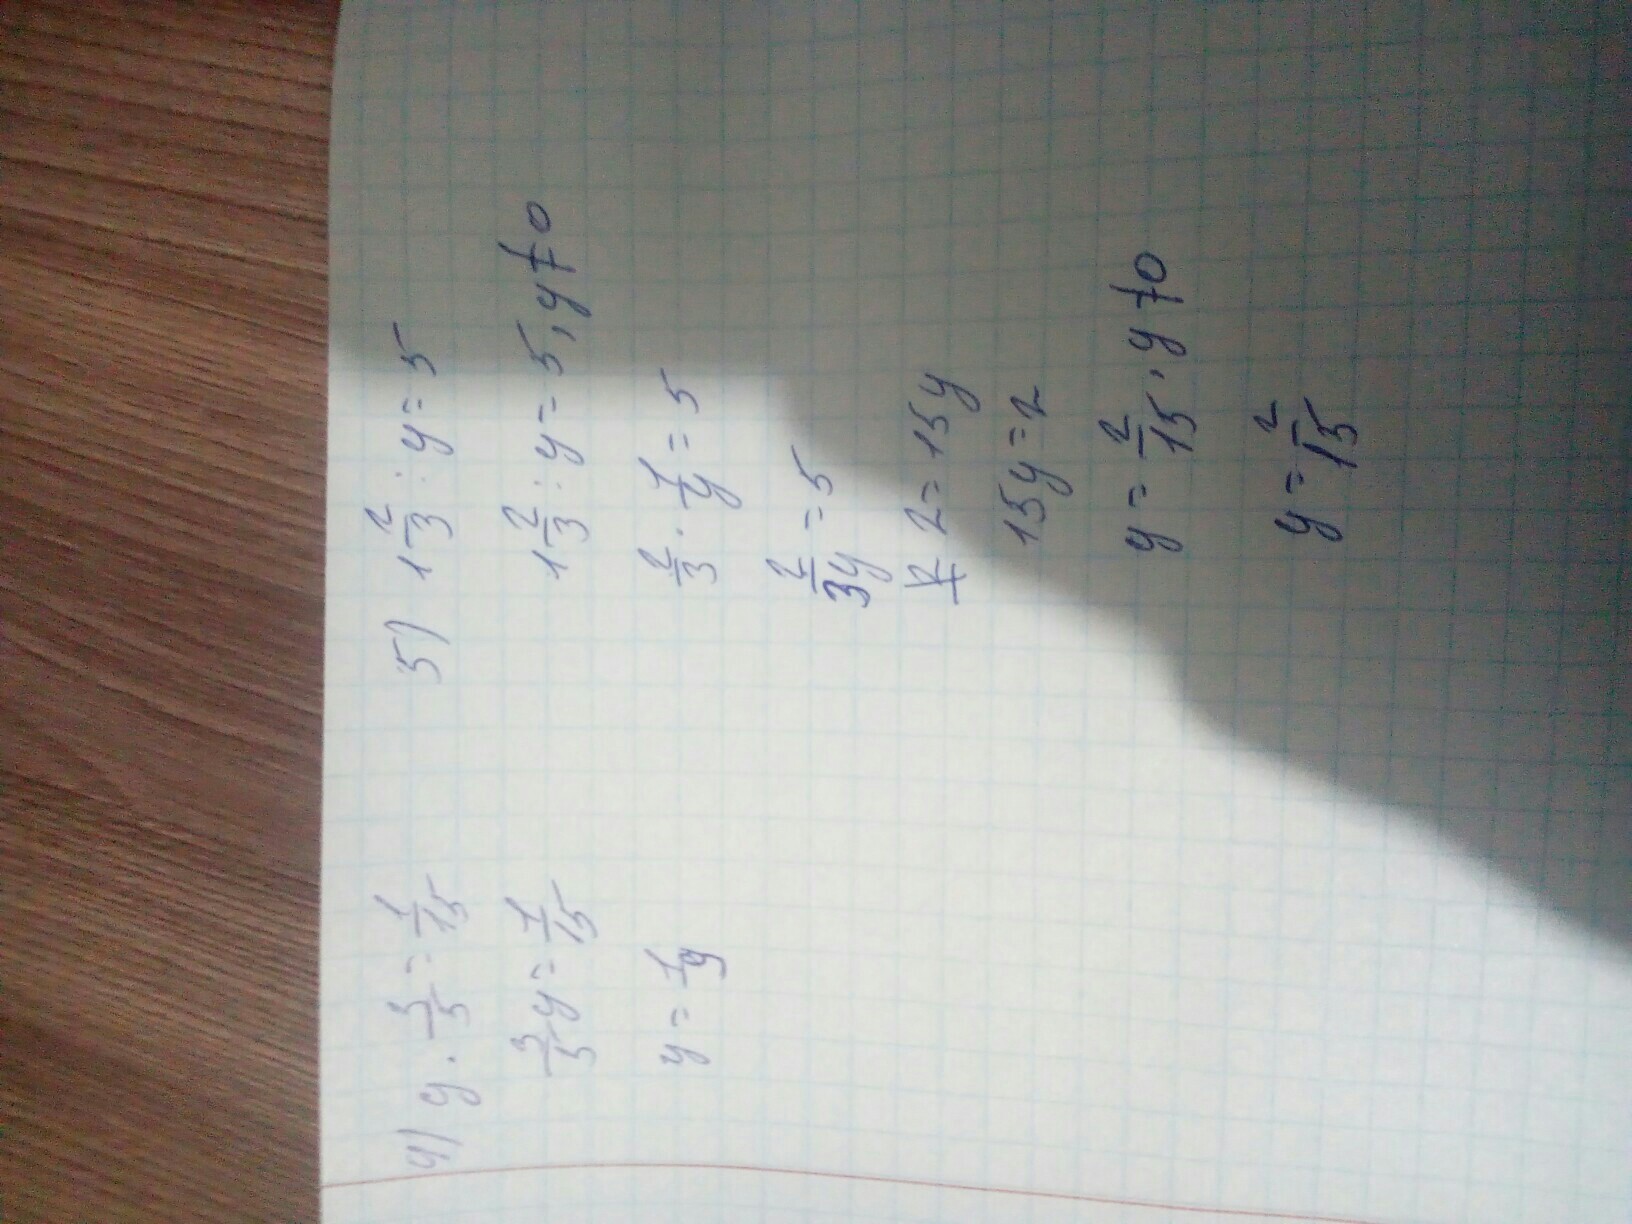 4) y · 3/5 = 1/15
3/5 y = 1/15
y = 1/9
5) 1 2/3 : y = 5
1 2/3 : y = 5, y ≠ 0
2/3 · 1/y = 5
2/3y = 5
2 = 15y
15y = 2
y = 2/15, y ≠ 0
y = 2/15